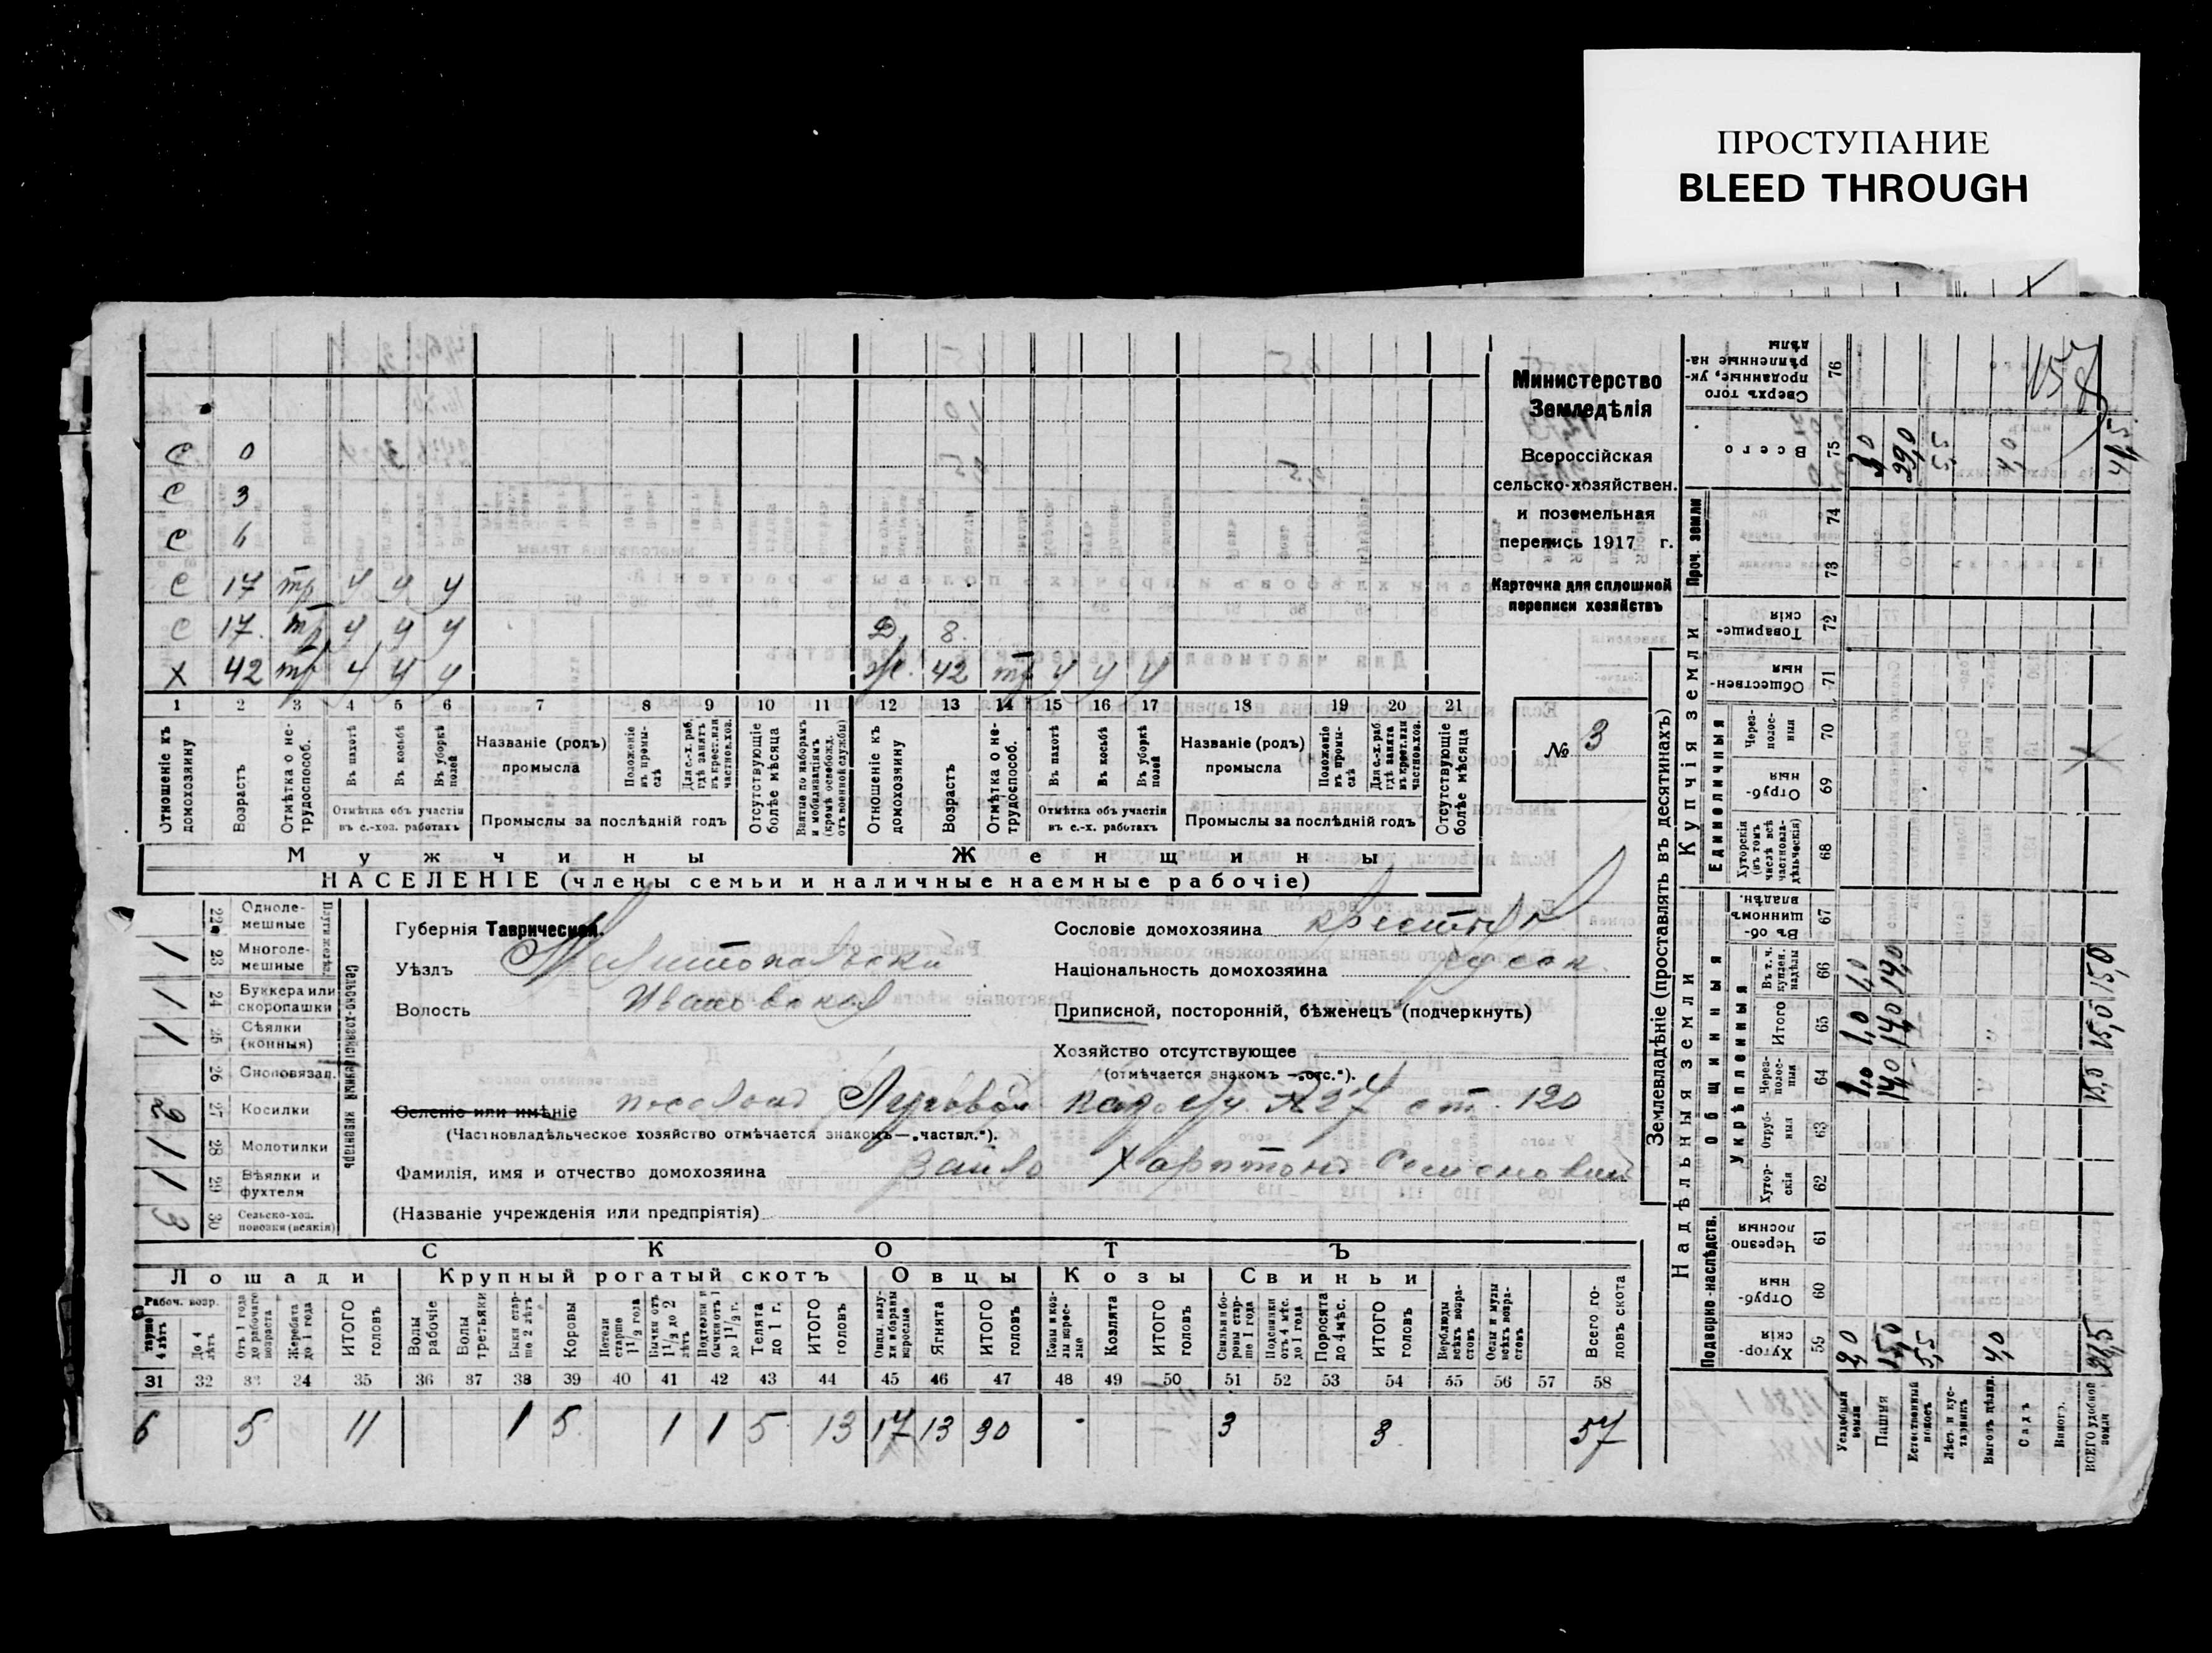 ПРОСТУПАНИЕ
BLEED THROUGH
С 0
С 3
С
С 17 тр у у у
С 17. тр у у у Д 8.
Х 42 тр у у у Ж. 42 тр у у у
1 2 3 4 5 6 7 8 9 10 11 12 13 14 15 16 17 18 19 20 21
Отношеніе къ домохозяину
Возрастъ
Отмѣтка о нетрудоспособ.
Въ пахотѣ
Въ косьбѣ
Въ уборкѣ полей
Отмѣтка объ участіи въ с.-хоз. работахъ
Названіе (родъ) промысла
Положеніе въ промыслѣ
Для с.-х. раб. гдѣ занятъ въ крест. или частнов. хоз.
Промыслы за послѣдній годъ
Отсутствующіе болѣе мѣсяца
Взятые по наборамъ и мобилизаціямъ (кромѣ освобожд. отъ военной службы)
Отношеніе къ домохозяину
Возрастъ
Отмѣтка о нетрудоспособ.
Въ пахотѣ
Въ косьбѣ
Въ уборкѣ полей
Отмѣтка объ участіи въ с.-х. работахъ
Названіе (родъ) промысла
Положеніе въ промыслѣ
Для с.-х. раб. гдѣ занята въ крест. или частнов. хоз.
Промыслы за послѣдній годъ
Отсутствующіе болѣе мѣсяца
Мужчины Женщины
НАСЕЛЕНІЕ (члены семьи и наличные наемные рабочіе)
Министерство
Земледѣлія
Всероссійская
сельско-хозяйствен.
и поземельная
перепись 1917 г.
Карточка для сплошной
переписи хозяйствъ
№ 3
Сельско-хозяйственный инвентарь
22 Однолемешные
23 Многолемешные 1
24 Буккера или скоропашки 1
25 Сѣялки (конныя) 1
26 Сноповязал.
27 Косилки 2
28 Молотилки 1
29 Вѣялки и фухтеля 1
30 Сельско-хоз. повозки (всякія) 3
Губернія Таврической.
Уѣздъ Мелитопольскій
Волость Ивановская
Сословіе домохозяина крестьян
Національность домохозяина русск.
Приписной, посторонній, бѣженецъ (подчеркнуть)
Хозяйство отсутствующее
(отмѣчается знакомъ —„отс.“).
Селеніе или имѣніе Луговой № 27 ст. 120
(Частновладѣльческое хозяйство отмѣчается знакомъ—„частвл.“).
Фамилія, имя и отчество домохозяина Харитонъ Семеновичъ
(Названіе учрежденія или предпріятія)
СКОТЪ
Лошади Крупный рогатый скотъ Овцы Козы Свиньи
Рабоч. возр.
Старше 4 лѣтъ
До 4 лѣтъ
Отъ 1 года до рабочаго возраста
Жеребята до 1 года
ИТОГО головъ
Волы рабочіе
Волы третьяки
Быки старше 2 лѣтъ
Коровы
Нетели старше 1½ года
Бычки отъ 1½ до 2 лѣтъ
Подтелки и бычки отъ 1 до 1½ г.
Телята до 1 г.
ИТОГО головъ
Овцы, валухи и бараны взрослые
Ягнята
ИТОГО головъ
Козы и козлы взрослые
Козлята
ИТОГО головъ
Свиньи и боровы старше 1 года
Подсвинки отъ 4 мѣс. до 1 года
Поросята до 4 мѣс.
ИТОГО головъ
Верблюды всѣхъ возрастовъ
Ослы и мулы всѣхъ возрастовъ
Всего головъ скота
31 32 33 34 35 36 37 38 39 40 41 42 43 44 45 46 47 48 49 50 51 52 53 54 55 56 57 58
6 5 11 1 5 1 1 5 13 17 13 30 3 3 57
Землевладѣніе (проставлять въ десятинахъ)
Надѣльныя земли
Купчія земли
Проч. земли
Подворно-наслѣдств.
Общинныя
Укрѣпленныя
Единоличныя
Хуторскія 59
Отрубныя 60
Черезполосныя 61
Хуторскія 62
Отрубныя 63
Черезполосныя 64
Итого 65
Въ т. ч. куплен. надѣлы 66
Въ общинномъ владѣн. 67
Хуторскія (въ томъ числѣ всѣ частновладѣльческія) 68
Отрубныя 69
Черезполосныя 70
Общественныя 71
Товарищескія 72
73
74
Всего 75
Сверхъ того проданные, укрѣпленные надѣлы 76
Усадебныя земли 2,0 1,0 1,0 1,0 3,0
Пашня 15,0 14,0 14,0 14,0 29,0
Естественный покосъ 5,5 5,5
Лѣсъ и кустарникъ
Выгонъ цѣлин. 4,0 4,0
Садъ
Виногр.
ВСЕГО удобной земли 26,5 15,0 15,0 15,0 41,5